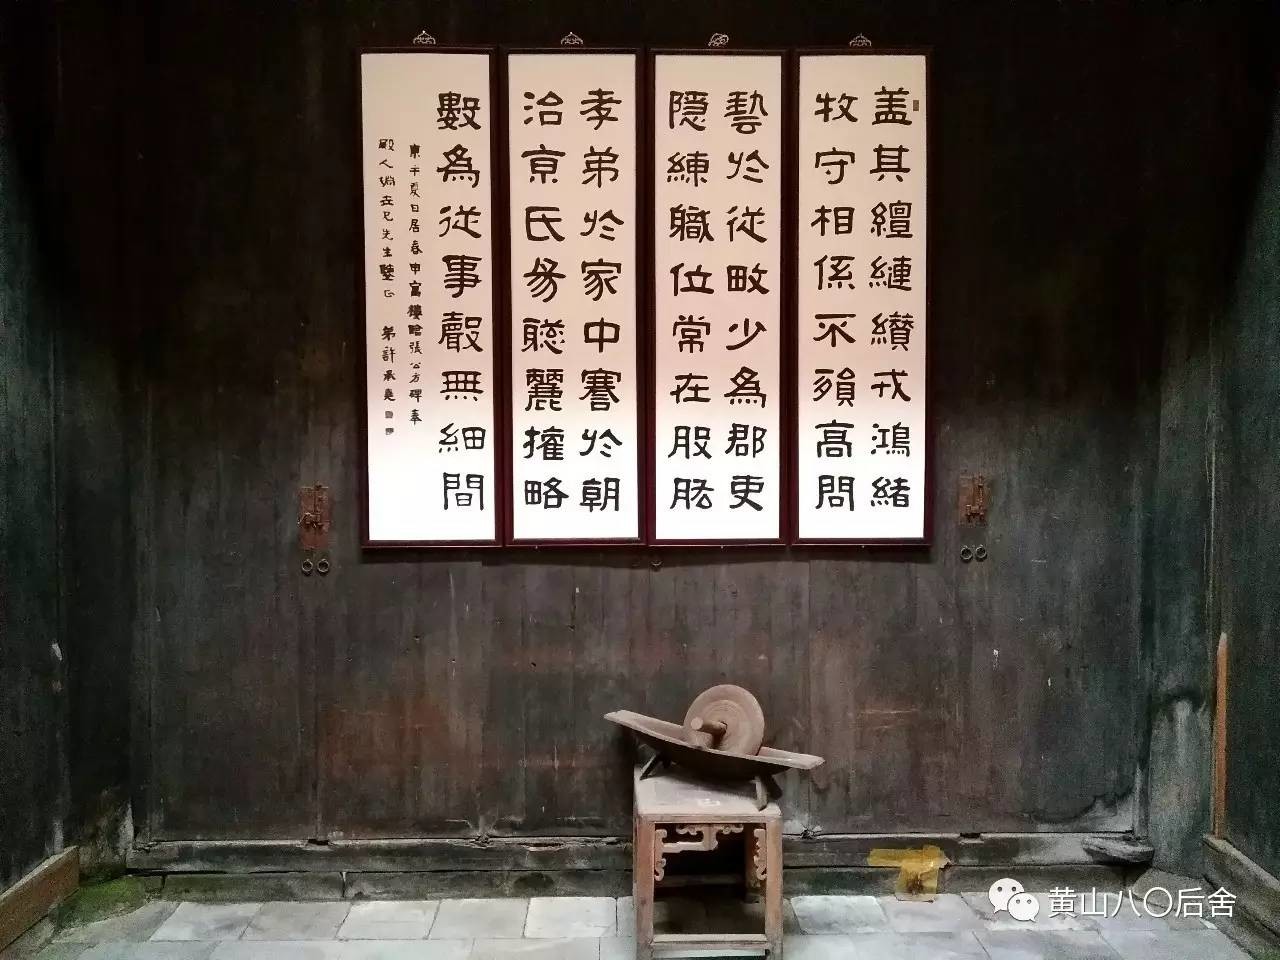 盖其缠縺缵戎鴻緒
牧守相係不殞高問
藝於従畋少為郡吏
隱練職位常在股肱
孝弟於家中謇於朝
治京氏易聡麗權略
數為從事聲無細間
夏日居春申寓樓臨張公方碑奉
先生鑒正 弟許承堯
黄山八〇后舍